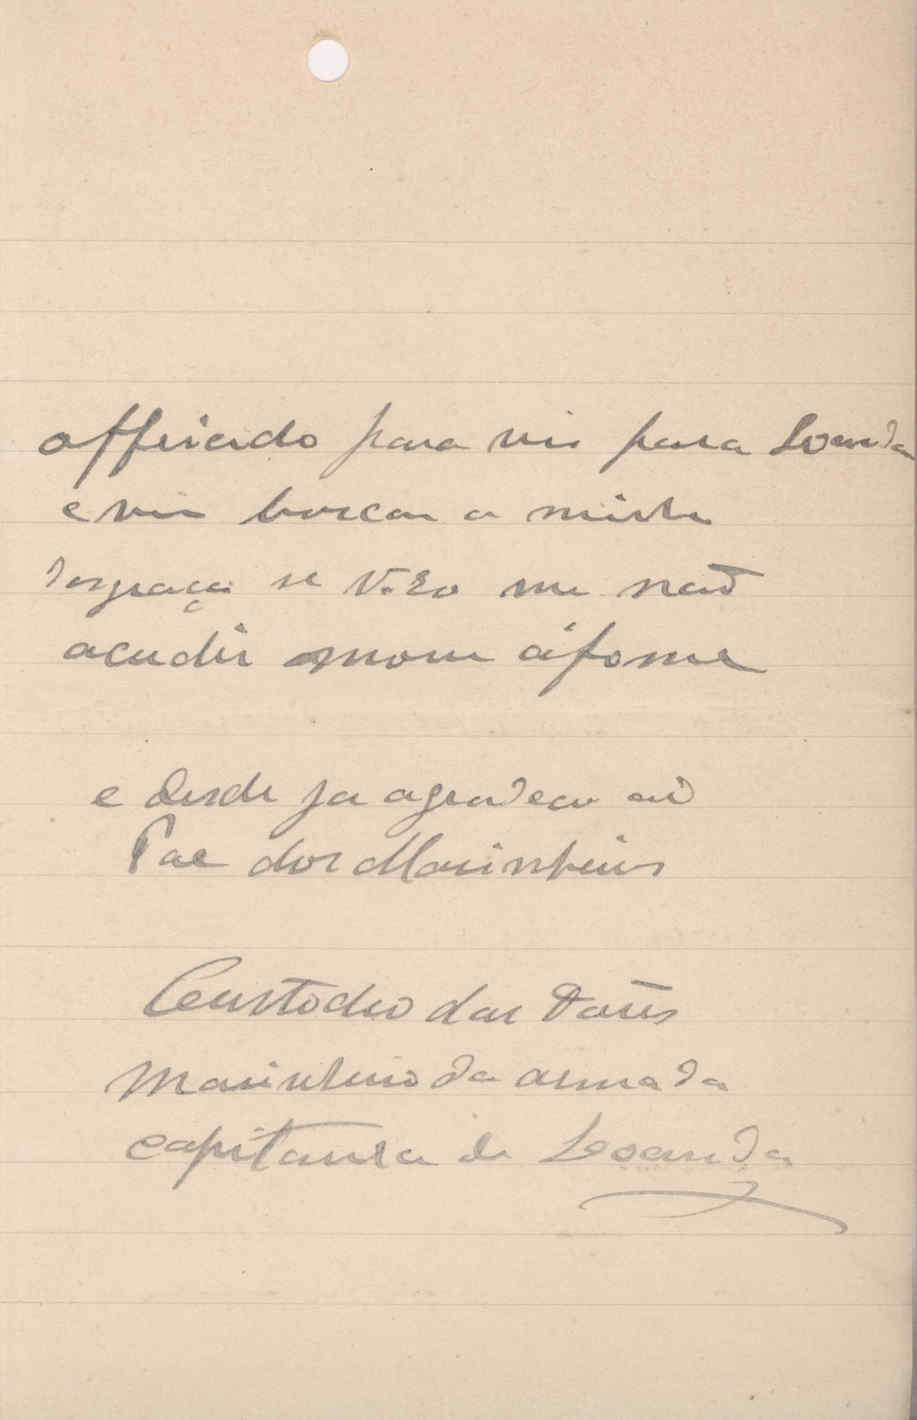 offerecido para vir para Loanda
e vir buscar a minha
desgraça se V. Exo me naõ
acudir morro á fome
e desde ja agradeco aõ
Pae dos Marinheiros
Custodio das
Marinheiro da armada
capitania de Loanda